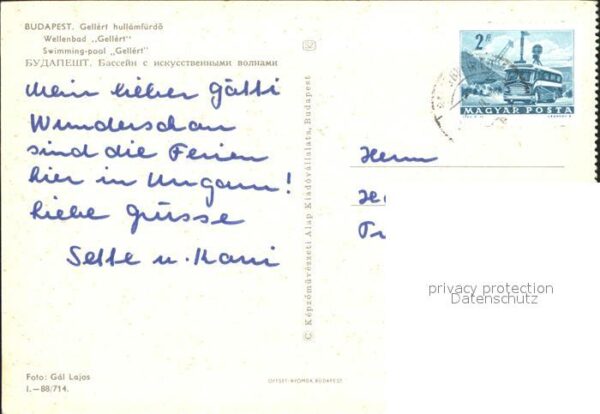 BUDAPEST. Gellért hullámfürdő
Wellenbad „Gellért"
Swimming-pool „Gellért"
БУДАПЕШТ. Бассейн с искусственными волнами
Mein lieber Götti
Wunderschön
sind die Ferien
hier in Ungarn!
Liebe Grüsse
Sette u. Kari
Foto: Gál Lajos
I.—88/714.
© Képzőművészeti Alap Kiadóvállalata, Budapest
OFFSET-NYOMDA BUDAPEST
2 Ft
MAGYAR POSTA
Herrn
privacy protection
Datenschutz